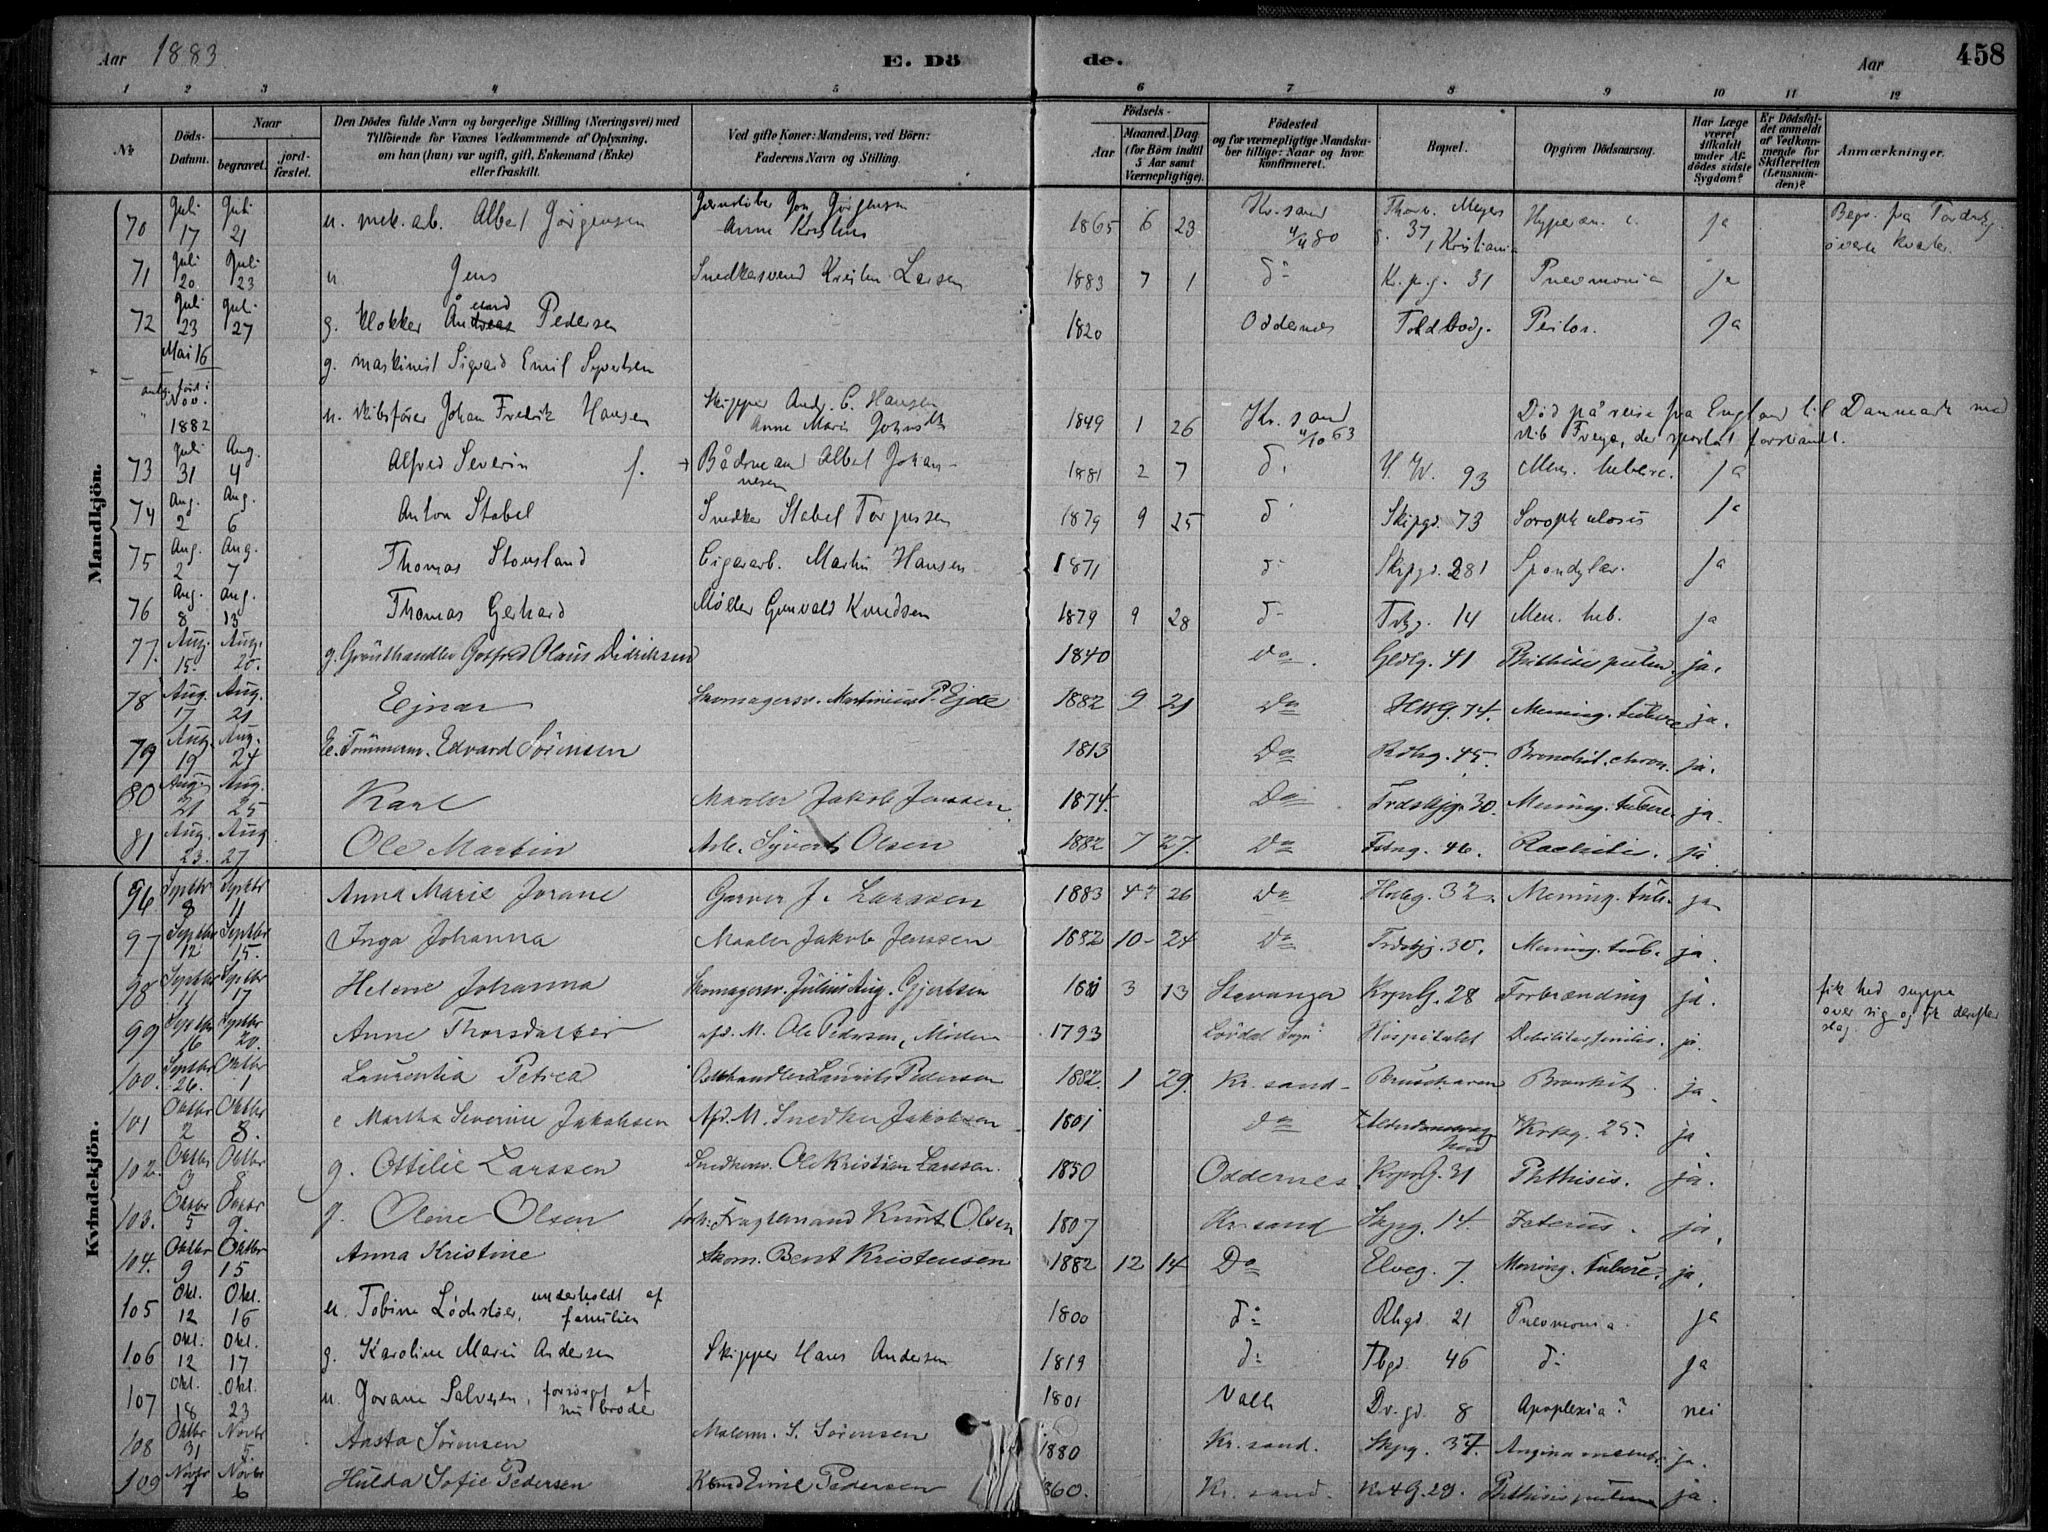 Aar 1883. E. Döde. Aar 458
1 2 3 4 5 6 7 8 9 10 11 12
№ Döds-Datum. Naar begravet. jordfæstet. Den Dödes fulde Navn og borgerlige Stilling (Næringsvei) med Tilföiende for Voxnes Vedkommende af Oplysning, om han (hun) var ugift, gift, Enkemand (Enke) eller fraskilt. Ved gifte Koner: Mandens, ved Börn: Faderens Navn og Stilling. Födsels- Aar Maaned. Dag (for Börn indtil 5 Aar samt Værnepligtige). Födested og for værnepligtige Mandskaber tillige: Naar og hvor konfirmeret. Bopæl. Opgiven Dödsaarsag. Har Læge været tilkaldt under Afdödes sidste Sygdom? Er Dödsfaldet anmeldt af Vedkommende for Skifteretten (Lensmanden)? Anmærkninger.
Mandkjön.
70 Juli 17 Juli 21 u. mek. arb. Albel Jörgensen 1865 6 23 Kr.sand 37, Kristiania ja
71 Juli 20 Juli 23 u Jens Snedkersvend Kristen Larsen 1883 7 1 do K.p.g. 31 Pneomonia ja
72 Juli 23 Juli 27 g. klokker Pedersen 1820 Oddernes Toldbodg. ja
Mai 16 g. maskinist Sigvard Emil Syvertsen
Nov. 1882 u. skibsfører Johan Fredrik Hansen Skipper Andr. C. Hansen 1849 1 26 Kr. sand 4/10 63 Død på reise fra England til Danmark med skib Freya, der sporløst forsvandt.
73 Juli 31 Aug. 4 Alfred Severin f. Bådsmand Albel Johannesen 1881 2 7 do 93 Men. tuberc. ja
74 Aug. 2 Aug. 6 Anton Stabel Snedker Stabel Torjussen 1879 9 25 do Skipgd. 73 Scrophulosis ja
75 Aug. 2 Aug. 7 Thomas Stousland Cigararb. Martin Hansen 1871 do Skpgd. 281 Spondylar. ja
76 Aug. 8 aug. 13 Thomas Gerhard Møller Gunvald Knudsen 1879 9 28 do 14 Men. tub. ja
77. Aug. 15. Aug. 20. g. Grönthandler Gotfred Olaus Didriksen 1840 Do. Gldlg. 41 ja.
78 Aug. 17 Aug. 21 Ejnar Skomagersv. Martinius P. Ejde 1882 9 21 Do 74. Mening. tuberc. ja.
79 Aug. 19 Aug. 24 E. Tömmerm. Edvard Sörensen 1813 Do Rdhg. 45. Bronchit. chron. ja.
80 Aug. 21 Aug. 25 Karl Maaler Jakob Jenssen 1874. Do Trdskjg. 30. Mening. tuberc. ja.
81 Aug. 23. Aug 27 Ole Martin Arb. Syvert Olsen 1882 7 27. Do 46. Rachitis. ja.
Kvindekjön.
96. Septbr 8 Septbr 11 Anna Marie Jorane Garver J. Larssen 1883 4 26 Do 32. Mening. tub. ja
97 Septbr 12 Septbr 15. Inga Johanna Maaler Jakob Jenssen 1882 10 24 Do Trdskjg. 30. Mening. tub. ja.
98 Septbr 11 Septbr 17 Helene Johanna Skomagersv. Julius Aug. Gjertsen 3 13 Stavanger KrprG. 28 Forbrænding ja. fik hed suppe over sig og fik derefter slag
99 Septbr 16 Septbr 20. Anne Thorsdatter afd. M. Ole Pedersen, 1793 Hospitalet Debilitas senilis. ja.
100. Septbr 26. Oktbr 1 Laurentia Petrea Laurits Pedersen 1882. 1 29. Kr. sand Bronkit. ja.
101 Oktbr 2 Oktbr 8. e Martha Severine Jakobsen Afd. M. Snedker Jakobsen 1801 Do Krkg. 25. ja
102. Oktbr Oktbr 8 g. Ottilie Larssen Snedkersv. Ole Kristian Larsen. 1850 Oddernes KrprG. 31 Phthisis. ja.
103. Oktbr 5 Oktbr 9. g. Olene Olsen Fragtemand Knut Olsen 1807 Kr. sand Skpg. 14. Icterus. ja.
104. Oktbr 9 Oktbr 15 Anna Kristine Skom. Bent Kristensen 1882 12 14 Do Elveg. 7. Mening. tuberc. ja.
105 Okt. 12 Okt. 16 u. Tobine underholdt af familien 1800 do Rhgd. 21 Pneomonia. ja
106 Okt. 12 Okt. 17 g. Karoline Marie Andersen Skipper Hans Andersen 1819 do Tbgd. 46 do ja
107 Okt. 18 Okt. 23 u. Jorane Salvesen, forsörget af sin broder 1801 Valle Dr. gd. 8 Apoplexia? nei
108 Oktbr 31 Novbr 5. Aasta Sörensen Malerm. S. Sörensen 1880 Kr. sand. Skpg. 37. Angina ja.
109 Novbr Novbr 6 Hulda Sofie Pedersen Emil Pedersen 860. Kr. sand. 29. Phthisis ja.